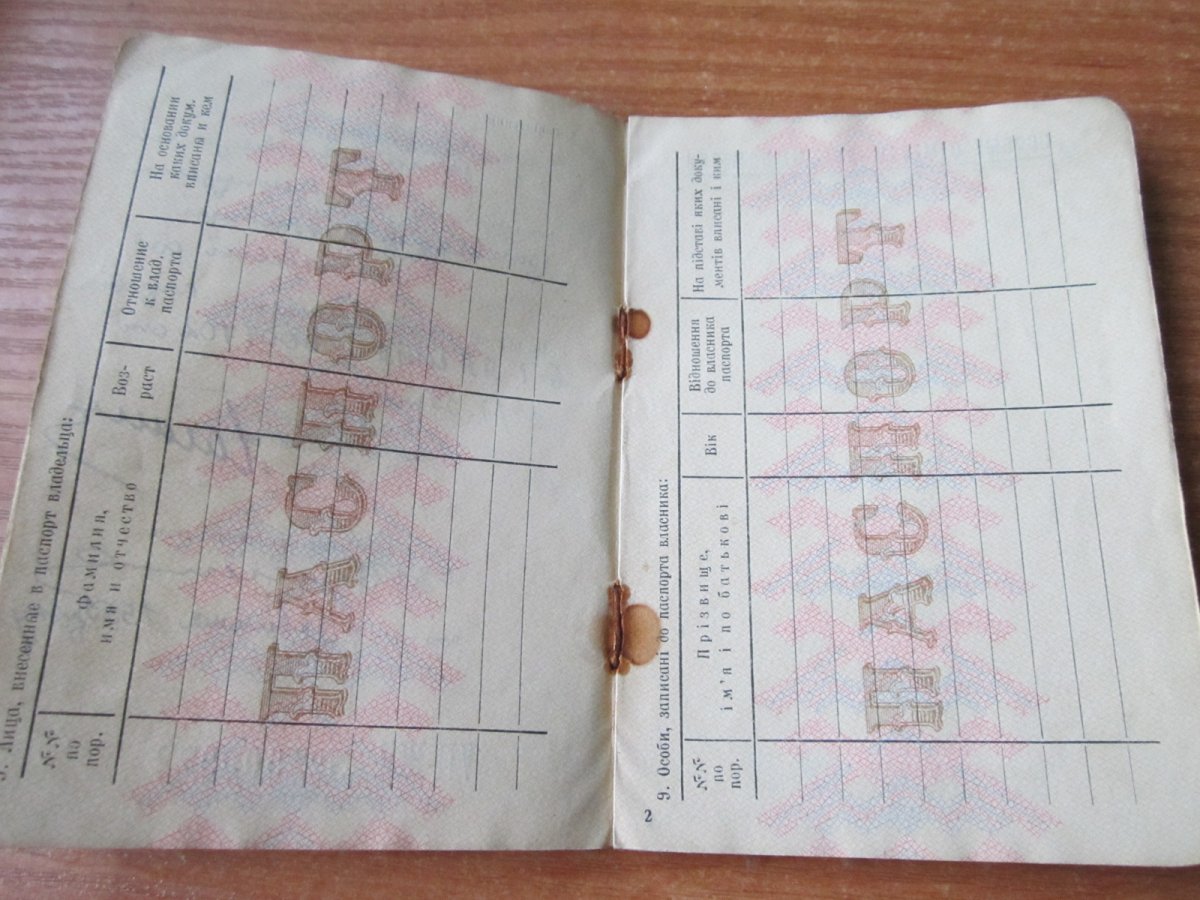 9. Лица, внесенные в паспорт владельца:
№№
по
пор.
Фамилия,
имя и отчество
Воз-
раст
Отношение
к влад.
паспорта
На основании
каких докум.
вписаны и кем
ПАСПОРТ
9. Особи, записані до паспорта власника:
№№
по
пор.
Прізвище,
ім'я і по батькові
Вік
Відношення
до власника
паспорта
На підставі яких доку-
ментів вписані і ким
ПАСПОРТ
2